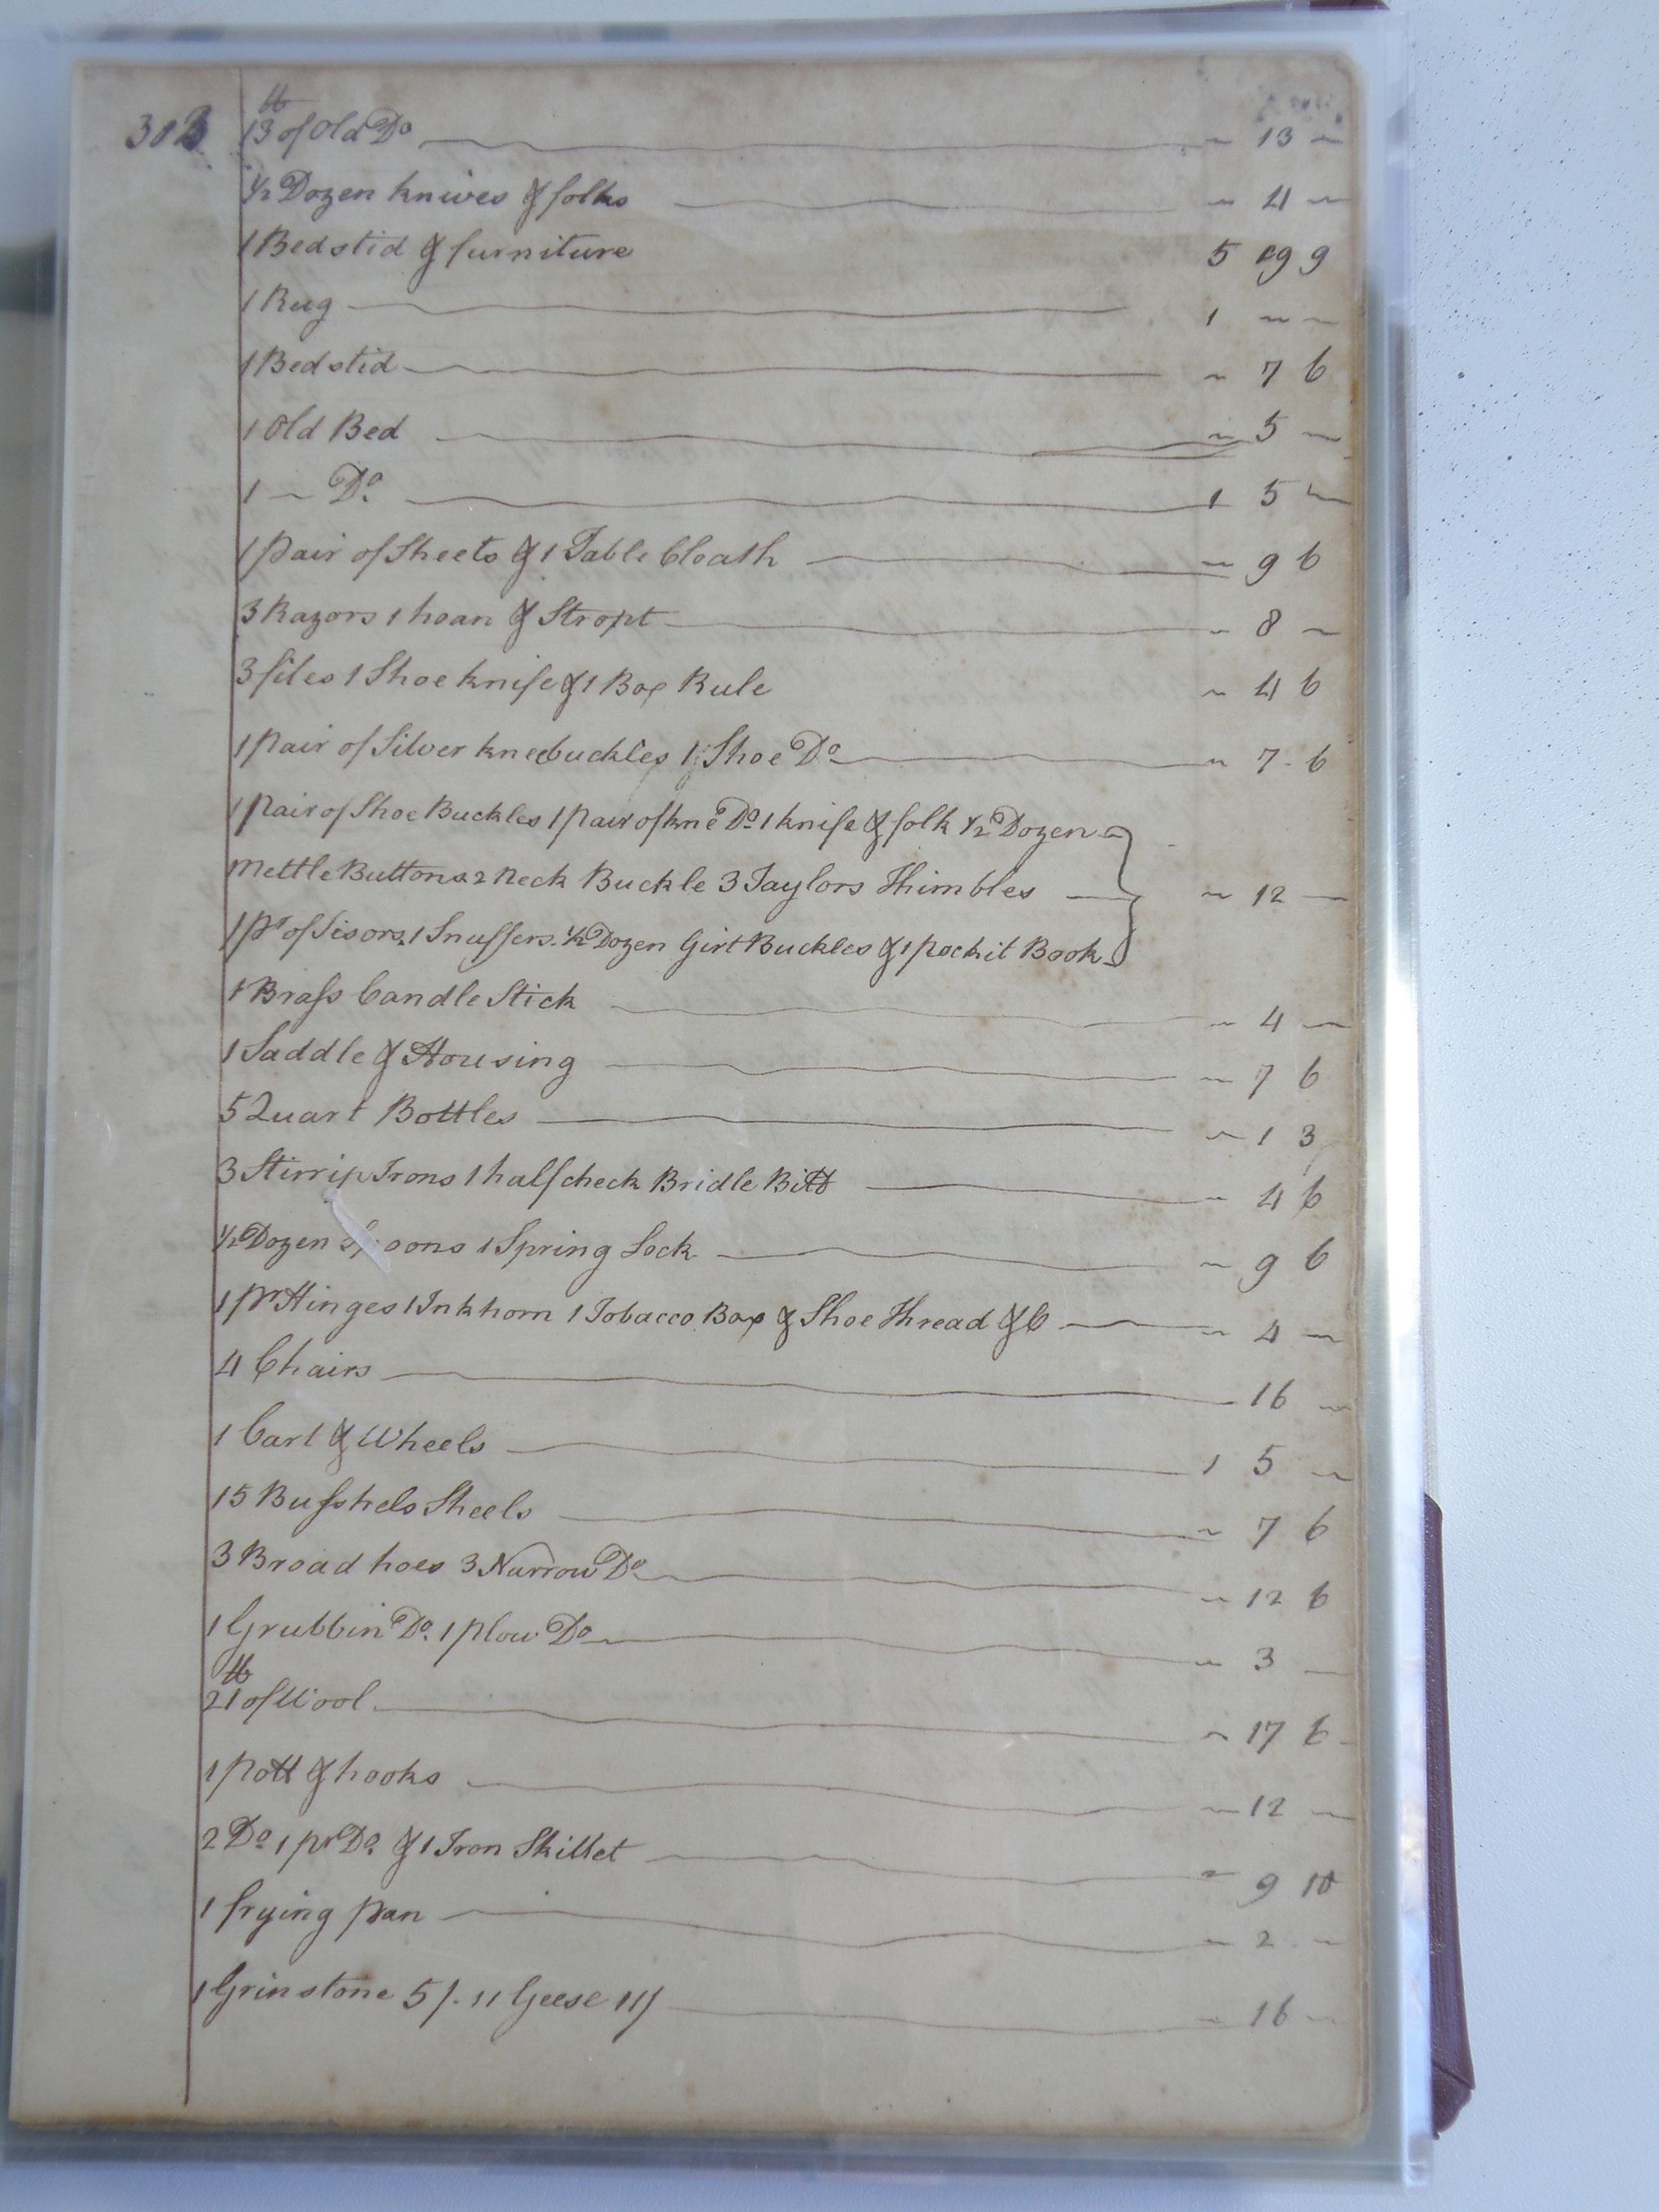 303 13 lb of Old Do ~ 13 ~
1/2 Dozen knives & folks ~ 4 ~
1 Bedstid & furniture 5 19 9
1 Rug 1 ~ ~
1 Bedstid ~ 7 6
1 Old Bed ~ 5 ~
1 ~ Do 1 5 ~
1 pair of Sheets & 1 Table Cloath ~ 9 6
3 Razors 1 hoan & Stropt ~ 8 ~
3 files 1 Shoe knife & 1 Box Rule ~ 4 6
1 pair of Silver kneebuckles 1 Shoe Do ~ 7 6
1 pair of Shoe Buckles 1 pair of kne Do 1 knife & folk 1/2 Dozen
Mettle Buttons 2 Neck Buckle 3 Taylors Thimbles ~ 12 ~
1 pr of Sisors, 1 Snuffers. 1/2 Dozen Girt Buckles & 1 pockit Book
1 Brass Candle Stick ~ 4 ~
1 Saddle & Housing ~ 7 6
5 Quart Bottles ~ 1 3
3 Stirrip Irons 1 half check Bridle Bitt ~ 4 6
1/2 Dozen Spoons 1 Spring Lock ~ 9 6
1 pr Hinges 1 Inkhorn 1 Tobacco Box & Shoe Thread &C ~ 4 ~
4 Chairs 16 ~
1 Cart & Wheels 1 5 ~
15 Busshels Sheels ~ 7 6
3 Broad hoes 3 Narrow Do ~ 12 6
1 Grubbin Do. 1 plow Do ~ 3 ~
21 lb of Wool ~ 17 6
1 pott & hooks ~ 12 ~
2 Do 1 pr Do & 1 Iron Skillet ~ 9 10
1 frying pan ~ 2 ~
1 Grinstone 5/. 11 Geese 11/ ~ 16 ~